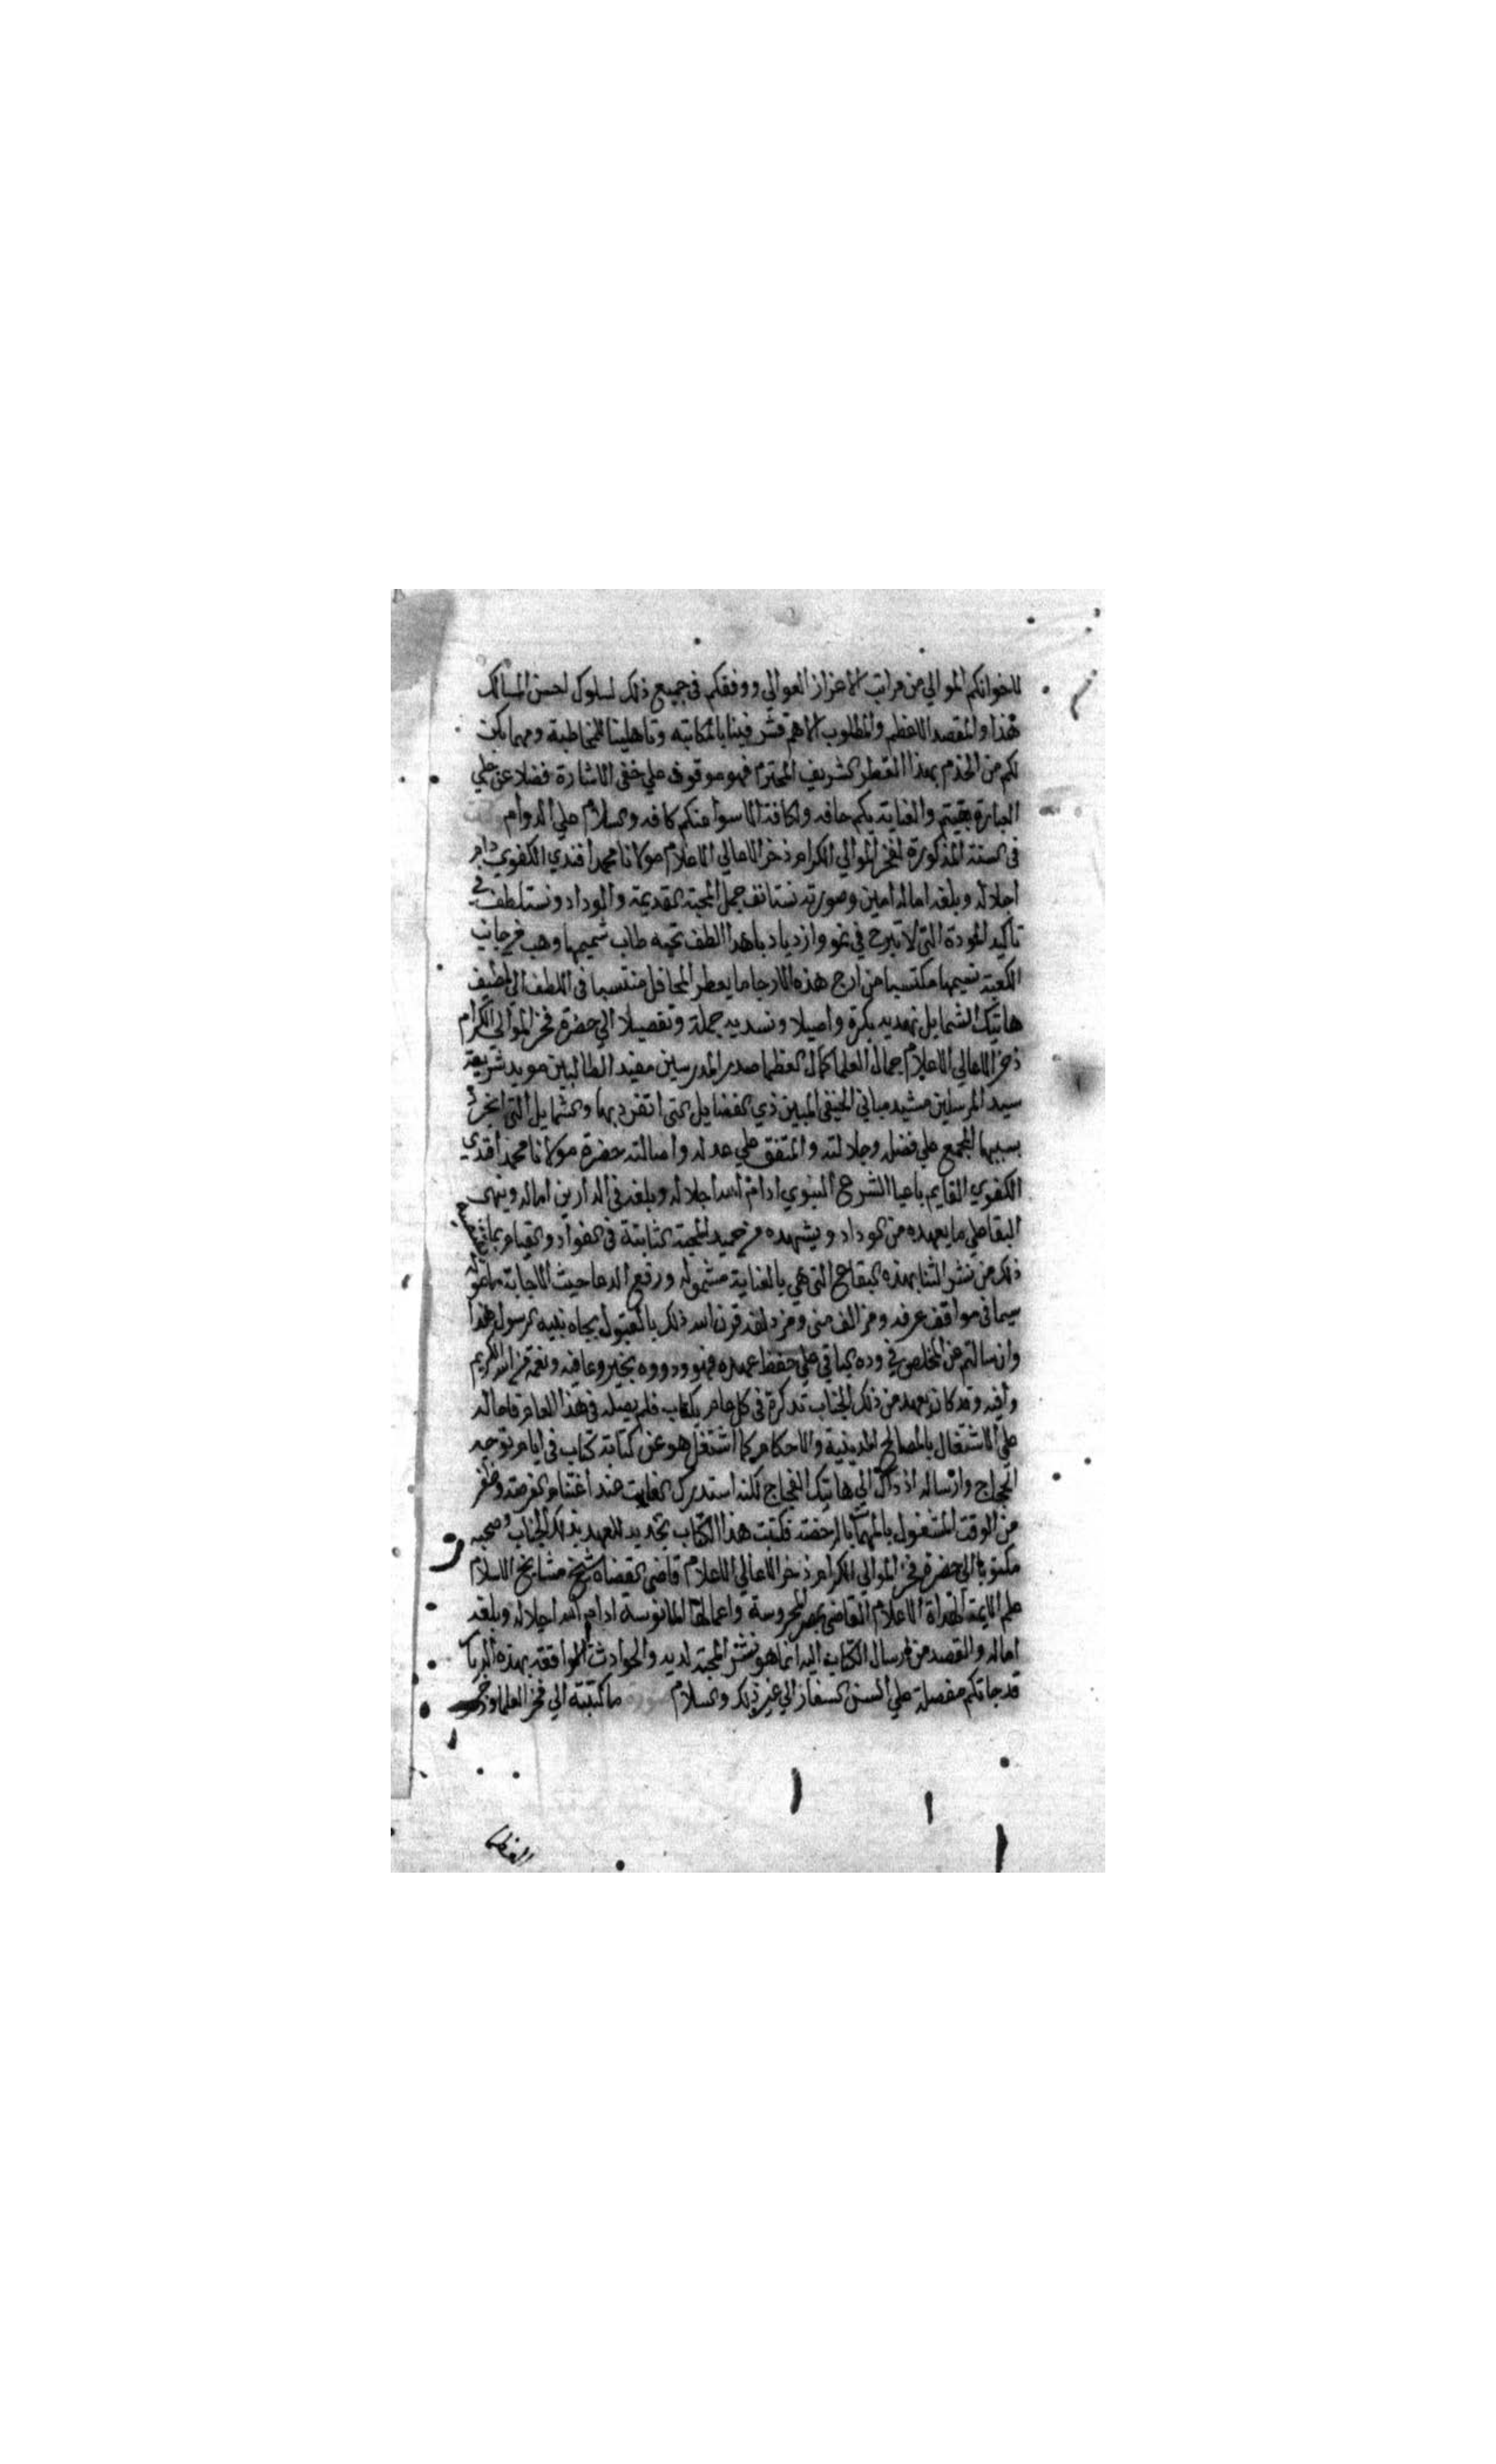 لاخوانكم الموالي من مراتب الاعزاز العوالي ووفقكم في جميع ذلك لسلوك احسن المسالك
هذا والمقصد الاعظم والمطلوب الاهم تشريفينا بالمكاتبه وتاهلينا للمخاطبة ومهما يكن
لكم من الخدم بهذا القطر الشريف المحترم فهو موقوف علي خفي الاشارة فضلا عن جلي
العبارة بقيتم والعناية بكم حافه واكافة الاسوا عنكم كافه والسلام علي الدوام
في السنة المذكورة لفخر الموالي الكرام ذخر الاهالي الاعلام مولانا محمد افندي الكفوي دام
اجلاله وبلغه اماله امين وصورته نستانف جمل المحبة القديمة والوداد ونستلطف في
تاكيد المودة التي لا تبرح في نمو وازدياد باهدا الطف تحيه طاب شميمها وهب من جانب
الكعبة نسيمها مكتسبا من ارج هذه الارجا ما يعطر المحافل منتسبا في اللطف الي لطيف
هاتيك الشمايل نهديه بكرة واصيلا ونسديه جملة وتفصيلا الي حضرة فخر الموالي الكرام
ذخر الاهالي الاعلام جمال العلما كمال العظما صدر المدرسين مفيد الطالبين مويد شريعة
سيد المرسلين مشيد مباني الحنيفي المبين ذي الفضايل التي انفرد بها والشمايل التي انخرد
بسببها المجمع علي فضله وجلالته والمتفق علي عدله واصالته حضرة مولانا محمد افندي
الكفوي القايم باعيا الشرع النبوي ادام الله اجلاله وبلغه في الدارين اماله وينهي
البقا علي ما يعهده من الوداد ويشهده من حميد المحبة الثابتة في الفواد والقيام بما تقتضيه
ذلك من نشر الثنا بهذه البقاع التي هي بالعناية مشموله ورفع الدعا حيث الاجابة مامولة
سيما في مواقف عرفه ومزالف مني ومزدلفه قرن الله ذلك بالقبول بجاه نبيه الرسول هذا
وان سالتم عن المخلص في وده الباقي علي حفظ عهده فهو ودووه بخير وعافيه ونعمة من الله الكريم
وافيه وقد كان يعهد من ذلك الجناب تذكرة في كل عام بكتاب فلم يصله في هذا العام فاحاله
علي الاشتغال بالمصالح الدينية والاحكام كما اشتغل هو عن كتابة كتاب في ايام توجه
الحجاج وارساله اذ ذاك الي هاتيك الفجاج لكنه استدرك الفايت عند اغتنام الفرصة وظفر
من الوقت المشغول بالمهمات بالرخصة فكتبت هذا الكتاب تجديد للعهد بذلك الجناب وصحبه
مكتوبا الي حضرة فخر الموالي الكرام ذخر الاعالي الاعلام قاضي القضاه شيخ مشايخ الاسلام
علم الايمة الهداة الاعلام القاضي بمصر المحروسة واعمالها المانوسة ادام الله اجلاله وبلغه
اماله والقصد من ارسال الكتاب اليه انما هو نشر المحبة لديه والحوادث الواقعه بهذه الديار
قد جاتكم مفصلة علي السن السفار الي غير ذلك والسلام صورة ما كتبته الي فخر العلما وذخر
العظما